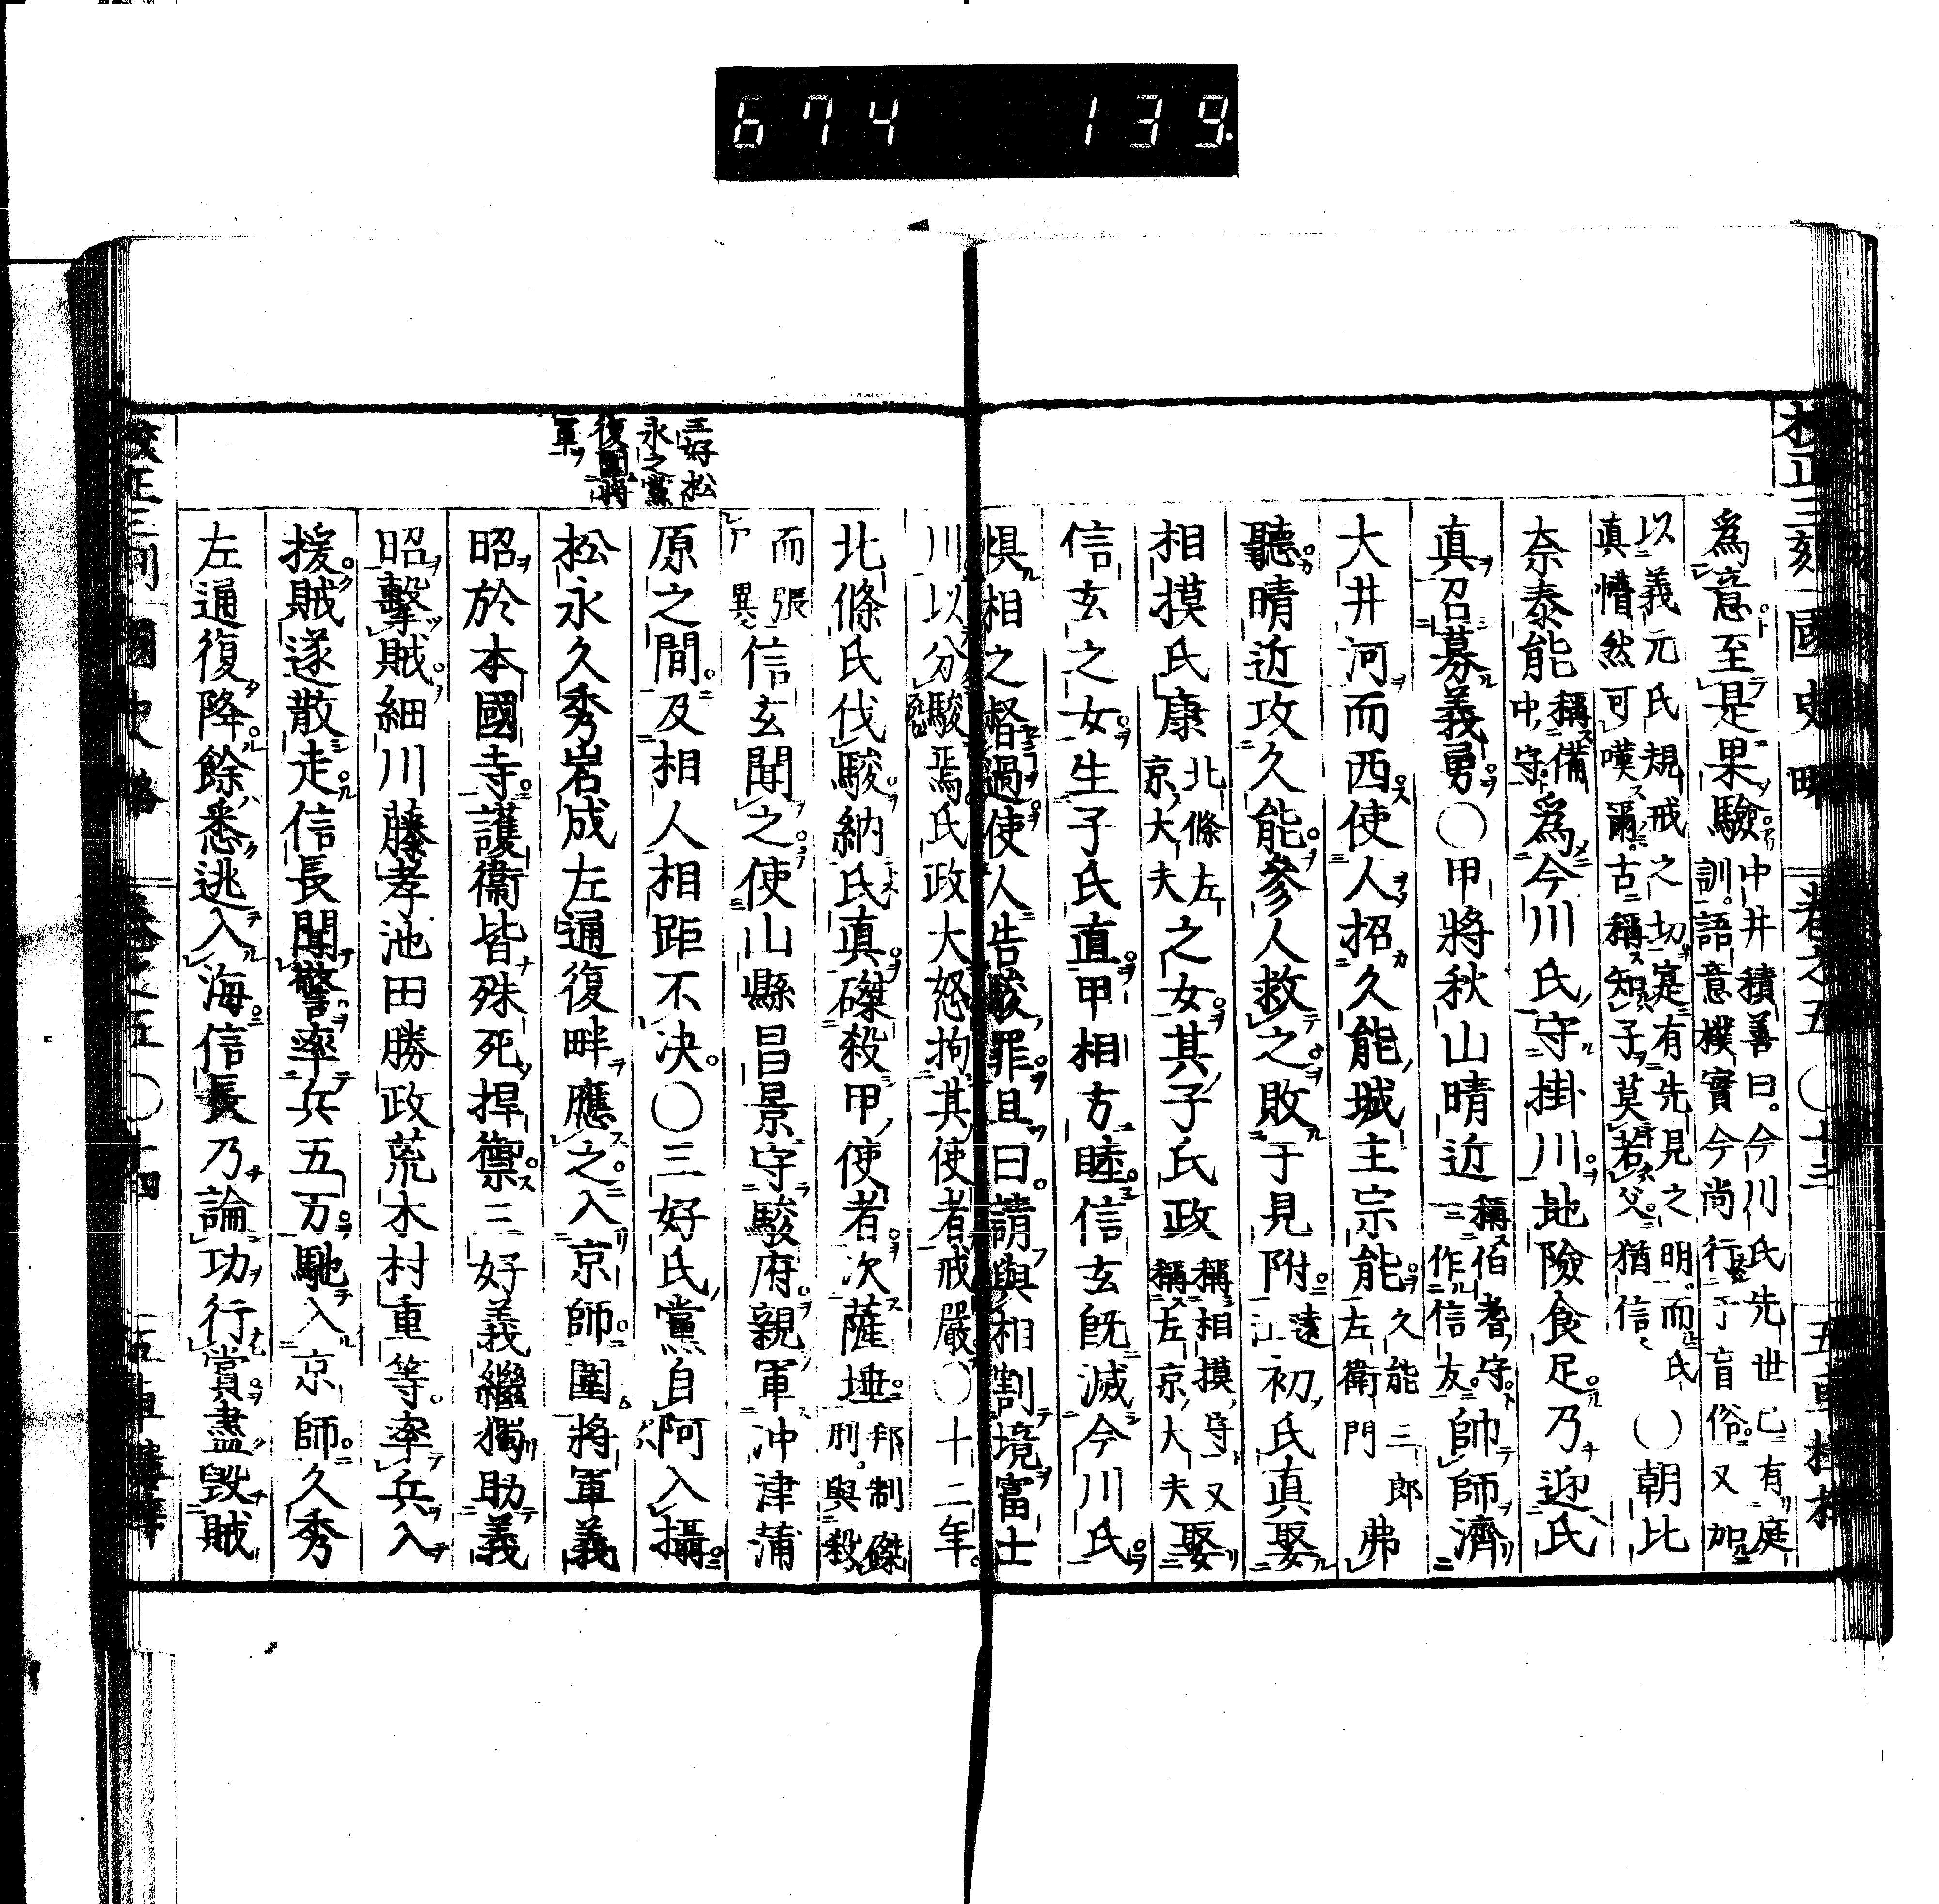 674 139
校正三刻國史略 卷之五 〇十三 五車樓梓
爲意至是果驗中井積善曰。今川氏先世已有庭訓。語意樸實今尚行于盲俗。又加
以義元氏規戒之切寔有先見之明。而氏真懵然可嘆爾。古稱知子莫若父。猶信〻〇朝比
奈泰能稱備中守爲今川氏守掛川地險食足乃迎氏
真召募義勇〇甲將秋山晴近稱伯耆守一作信友帥師濟
大井河而西使人招久能城主宗能久能三郎左衛門弗
聽晴近攻久能參人救之敗于見附遠江初氏真娶
相摸氏康北條左京大夫之女其子氏政稱相摸守又稱左京大夫娶
信玄之女生子氏直甲相方睦信玄既滅今川氏
惧相之督過使人告駿罪且曰。請與相割境富士
川以分駿焉氏政大怒拘其使者戒嚴〇十二年。
北條氏伐駿納氏真磔殺甲使者次薩埵邦制磔刑。與殺
而張尸異信玄聞之使山縣昌景守駿府親軍沖津蒲
原之間及相人相距不决。〇三好氏黨自阿入攝
三好松永之黨復圍將軍
松永久秀岩成左通復畔應之入京師圍將軍義
昭於本國寺護衞皆殊死捍禦三好義繼獨助義
昭擊賊細川藤孝池田勝政荒木村重等率兵入
援賊遂散走信長聞警率兵五万馳入京師久秀
左通復降餘悉逃入海信長乃論功行賞盡毀賊
校正三刻國史略 卷之五 〇十四 五車樓梓